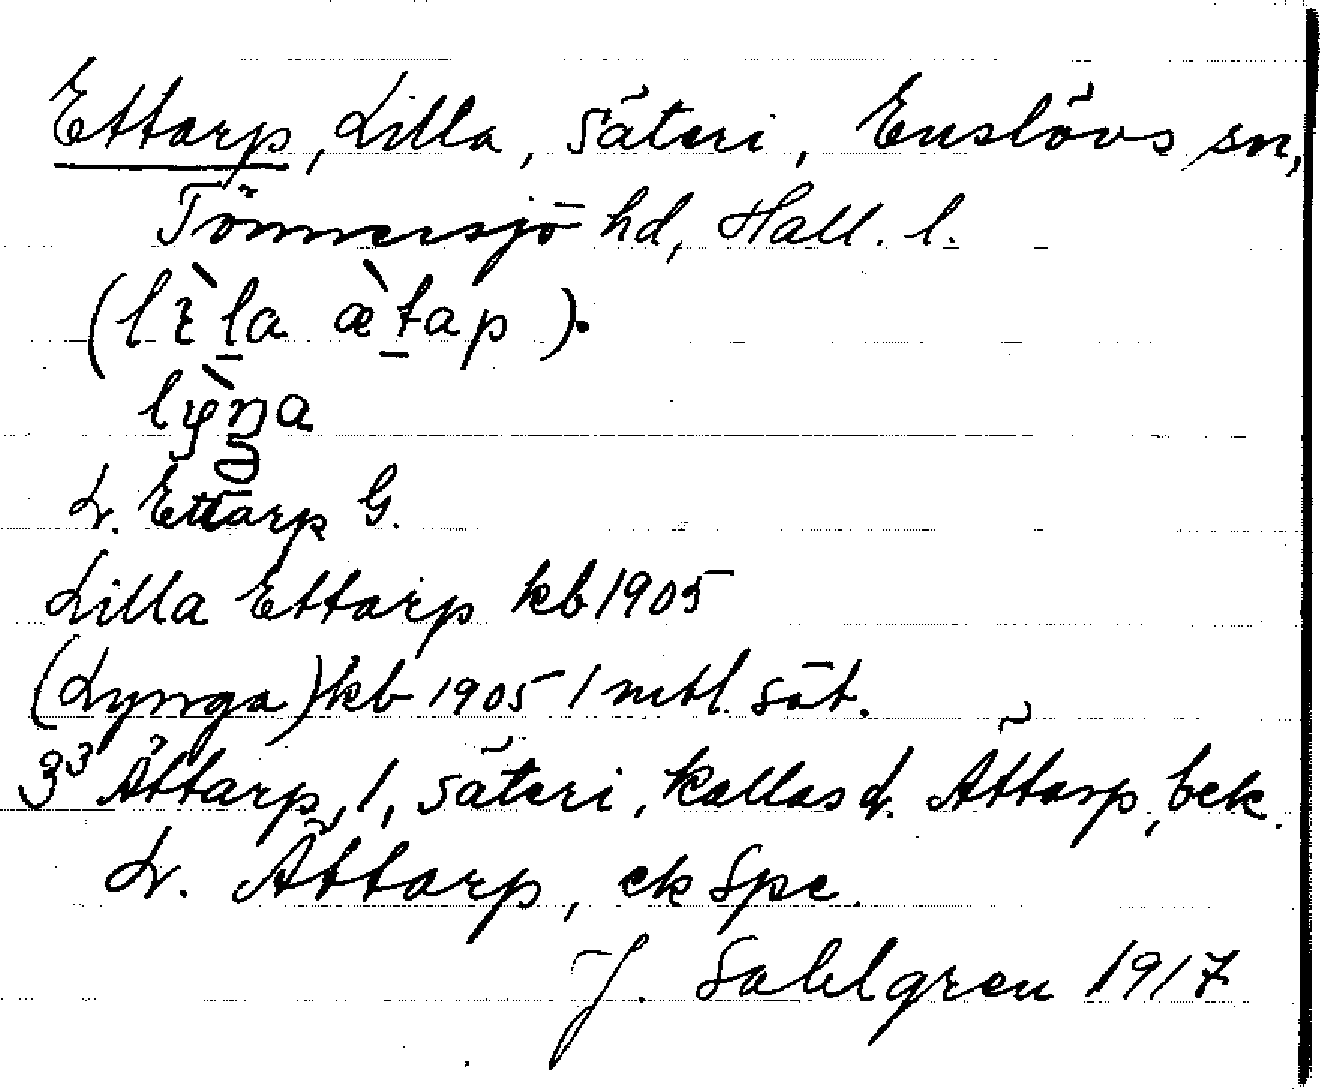 Ettarp, Lilla, säteri, Enslövs sn,
Tönnersjö hd, Hall. l.
(lìla ætap).
lyŋa
L. Ettarp G.
Lilla Ettarp kb 1905
(Lynga) kb 1905 1 mtl. sät.
3³ Ättarp, 1, säteri, kallas L. Ättarp, bek.
L. Ättarp, ek Spe.
J. Sahlgren 1917